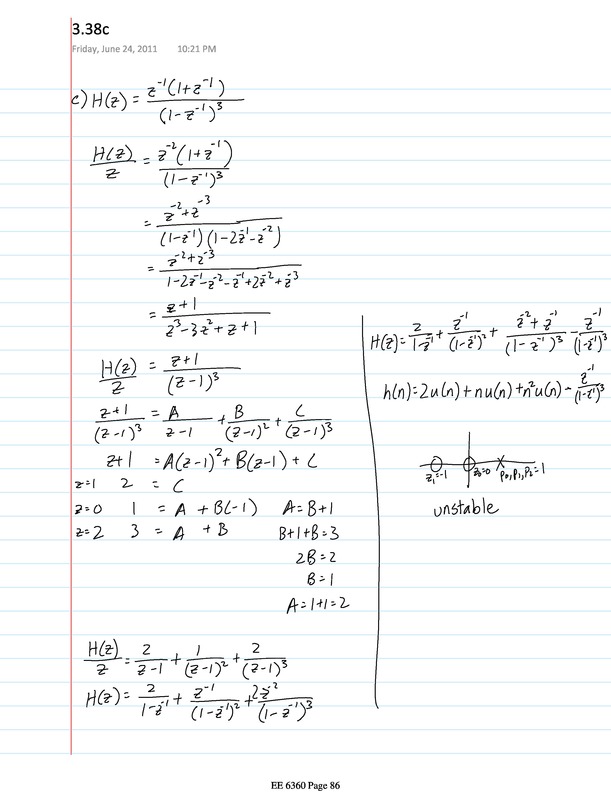 3.38c
Friday, June 24, 2011 10:21 PM
c) H(z) = z⁻¹(1+z⁻¹) / (1-z⁻¹)³
H(z)/z = z⁻²(1+z⁻¹) / (1-z⁻¹)³
= (z⁻²+z⁻³) / ((1-z⁻¹)(1-2z⁻¹-z⁻²))
= (z⁻²+z⁻³) / (1-2z⁻¹-z⁻²-z⁻¹+2z⁻²+z⁻³)
= (z+1) / (z³-3z²+z+1)
H(z)/z = (z+1) / (z-1)³
(z+1)/(z-1)³ = A/(z-1) + B/(z-1)² + C/(z-1)³
z+1 = A(z-1)² + B(z-1) + C
z=1 2 = C
z=0 1 = A + B(-1) A=B+1
z=2 3 = A + B B+1+B=3
2B=2
B=1
A=1+1=2
H(z)/z = 2/(z-1) + 1/(z-1)² + 2/(z-1)³
H(z) = 2/(1-z⁻¹) + z⁻¹/(1-z⁻¹)² + 2z⁻²/(1-z⁻¹)³
H(z) = 2/(1-z⁻¹) + z⁻¹/(1-z⁻¹)² + (z⁻²+z⁻¹)/(1-z⁻¹)³ - z⁻¹/(1-z⁻¹)³
h(n) = 2u(n) + nu(n) + n²u(n) - z⁻¹/(1-z⁻¹)³
z₁=-1 z₂=0 p₀,p₁,p₂=1
unstable
EE 6360 Page 86